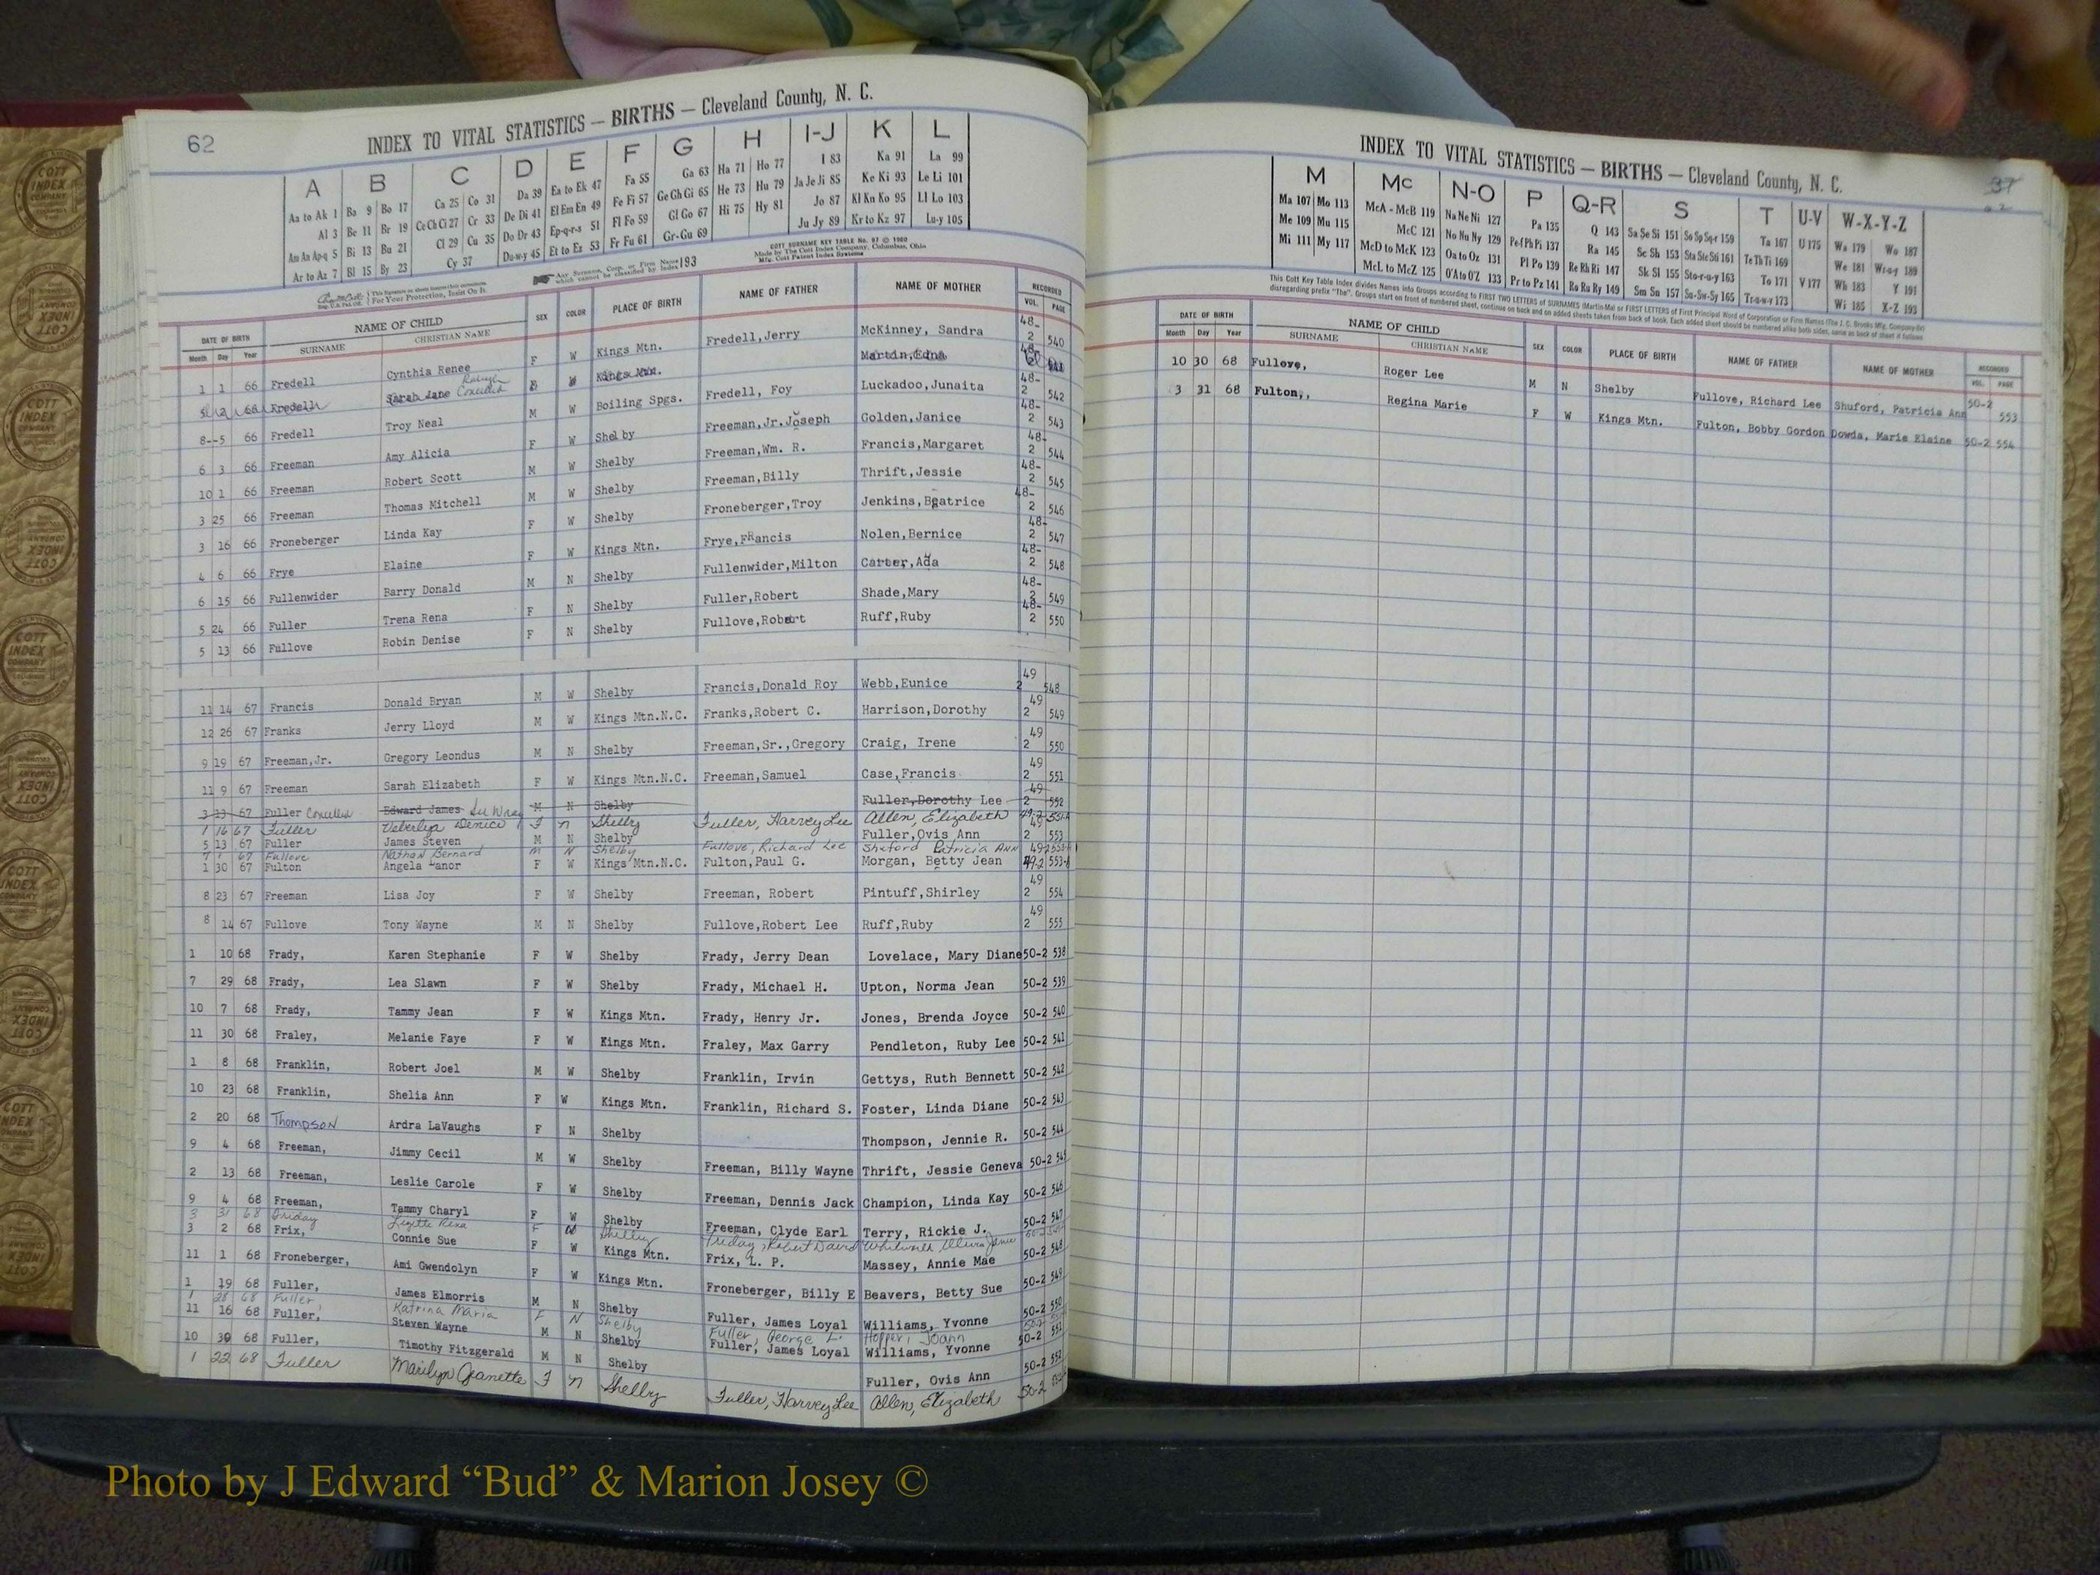 62
INDEX TO VITAL STATISTICS — BIRTHS — Cleveland County, N. C.
A B C D E F G H I-J K L
Aa to Ak 1 Ba 9 Bo 17 Ca 25 Co 31 Da 39 Ea to Ek 47 Fa 55 Ga 63 Ha 71 Ho 77 I 83 Ka 91 La 99
Al 3 Be 11 Br 19 Ce Ch Ci 27 Cr 33 De Di 41 El Em En 49 Fe Fi 57 Ge Gh Gi 65 He 73 Hu 79 Ja Je Ji 85 Ke Ki 93 Le Li 101
Am An Ap-q 5 Bi 13 Bu 21 Cl 29 Cu 35 Do Dr 43 Ep-q-r-s 51 Fl Fo 59 Gl Go 67 Hi 75 Hy 81 Jo 87 Kl Kn Ko 95 Ll Lo 103
Ar to Az 7 Bl 15 By 23 Cy 37 Du-w-y 45 Et to Ez 53 Fr Fu 61 Gr-Gu 69 Ju Jy 89 Kr to Kz 97 Lu-y 105
COTT SURNAME KEY TABLE No. 97 © 1960
Made by The Cott Index Company, Columbus, Ohio
Mfg. Cott Patent Index Systems
For Your Protection, Insist On It.
Any Surname, Corp. or Firm Name which cannot be classified by index 193
DATE OF BIRTH NAME OF CHILD SEX COLOR PLACE OF BIRTH NAME OF FATHER NAME OF MOTHER RECORDED
Month Day Year SURNAME CHRISTIAN NAME VOL. PAGE
1 1 66 Fredell Cynthia Renee F W Kings Mtn. Fredell,Jerry McKinney, Sandra 48-2 540
Fredell Sarah Jane Cancelled Kings Mtn. Martin,Edna 48-2
8--5 66 Fredell Troy Neal M W Boiling Spgs. Fredell, Foy Luckadoo,Junaita 48-2 542
6 3 66 Freeman Amy Alicia F W Shelby Freeman,Jr.Joseph Golden,Janice 48-2 543
10 1 66 Freeman Robert Scott M W Shelby Freeman,Wm. R. Francis,Margaret 48-2 544
3 25 66 Freeman Thomas Mitchell M W Shelby Freeman,Billy Thrift,Jessie 48-2 545
3 16 66 Froneberger Linda Kay F W Shelby Froneberger,Troy Jenkins,Beatrice 48-2 546
4 6 66 Frye Elaine F W Kings Mtn. Frye,Francis Nolen,Bernice 48-2 547
6 15 66 Fullenwider Barry Donald M N Shelby Fullenwider,Milton Carter,Ada 48-2 548
5 24 66 Fuller Trena Rena F N Shelby Fuller,Robert Shade,Mary 48-2 549
5 13 66 Fullove Robin Denise F N Shelby Fullove,Robert Ruff,Ruby 48-2 550
11 14 67 Francis Donald Bryan M W Shelby Francis,Donald Roy Webb,Eunice 49 2 548
12 26 67 Franks Jerry Lloyd M W Kings Mtn.N.C. Franks,Robert C. Harrison,Dorothy 49 2 549
9 19 67 Freeman,Jr. Gregory Leondus M N Shelby Freeman,Sr.,Gregory Craig, Irene 49 2 550
11 9 67 Freeman Sarah Elizabeth F W Kings Mtn.N.C. Freeman,Samuel Case,Francis 49 2 551
3 23 67 Fuller Cancelled Edward James M N Shelby Fuller,Dorothy Lee 49 2 552
1 16 67 Fuller Denice F N Shelby Fuller, Harvey Lee Allen, Elizabeth
5 13 67 Fuller James Steven M N Shelby Fuller,Ovis Ann 49 2 553
7 1 67 Fullove Nathan Bernard M N Shelby Fullove, Richard Lee Shuford Patricia Ann
1 30 67 Fulton Angela Lanor F W Kings Mtn.N.C. Fulton,Paul G. Morgan, Betty Jean 49-2
8 23 67 Freeman Lisa Joy F W Shelby Freeman, Robert Pintuff,Shirley 49 2 554
8 14 67 Fullove Tony Wayne M N Shelby Fullove,Robert Lee Ruff,Ruby 49 2 555
1 10 68 Frady, Karen Stephanie F W Shelby Frady, Jerry Dean Lovelace, Mary Diane 50-2 538
7 29 68 Frady, Lea Slawn F W Shelby Frady, Michael H. Upton, Norma Jean 50-2 539
10 7 68 Frady, Tammy Jean F W Kings Mtn. Frady, Henry Jr. Jones, Brenda Joyce 50-2 540
11 30 68 Fraley, Melanie Faye F W Kings Mtn. Fraley, Max Garry Pendleton, Ruby Lee 50-2 541
1 8 68 Franklin, Robert Joel M W Shelby Franklin, Irvin Gettys, Ruth Bennett 50-2 542
10 23 68 Franklin, Shelia Ann F W Kings Mtn. Franklin, Richard S. Foster, Linda Diane 50-2 543
2 20 68 Thompson Ardra LaVaughs F N Shelby Thompson, Jennie R. 50-2 544
9 4 68 Freeman, Jimmy Cecil M W Shelby Freeman, Billy Wayne Thrift, Jessie Geneva 50-2 545
2 13 68 Freeman, Leslie Carole F W Shelby Freeman, Dennis Jack Champion, Linda Kay 50-2 546
9 4 68 Freeman, Tammy Charyl F W Shelby Freeman, Clyde Earl Terry, Rickie J. 50-2 547
3 31 68 Friday F Shelby Friday, Robert David
3 2 68 Frix, Connie Sue F W Kings Mtn. Frix, L. P. Massey, Annie Mae 50-2 548
11 1 68 Froneberger, Ami Gwendolyn F W Kings Mtn. Froneberger, Billy E Beavers, Betty Sue 50-2 549
1 19 68 Fuller, James Elmorris M N Shelby Fuller, James Loyal Williams, Yvonne 50-2 550
1 28 68 Fuller, Katrina Maria F N Shelby Fuller, George L. Hopper, Joann
11 16 68 Fuller, Steven Wayne M N Shelby Fuller, James Loyal Williams, Yvonne 50-2 551
10 30 68 Fuller, Timothy Fitzgerald M N Shelby Fuller, Ovis Ann 50-2 552
1 22 68 Fuller Marilyn Jeanette F N Shelby Fuller, Harvey Lee Allen, Elizabeth 50-2
INDEX TO VITAL STATISTICS — BIRTHS — Cleveland County, N. C.
37
M Mc N-O P Q-R S T U-V W-X-Y-Z
Ma 107 Mo 113 McA - McB 119 Na Ne Ni 127 Pa 135 Q 143 Sa Se Si 151 So Sp Sq-r 159 Ta 167 U 175 Wa 179 Wo 187
Me 109 Mu 115 McC 121 No Nu Ny 129 Pe-f Ph Pi 137 Ra 145 Sc Sh 153 Sta Ste Sti 161 Te Th Ti 169 We 181 Wr-u-y 189
Mi 111 My 117 McD to McK 123 Oa to Oz 131 Pl Po 139 Re Rh Ri 147 Sk Sl 155 Sto-r-u-y 163 To 171 V 177 Wh 183 Y 191
McL to McZ 125 O'A to O'Z 133 Pr to Pz 141 Ro Ru Ry 149 Sm Sn 157 Su-Sw-Sy 165 Tr-u-w-y 173 Wi 185 X-Z 193
This Cott Key Table Index divides Names into Groups according to FIRST TWO LETTERS of SURNAMES (Martin-Ma) or FIRST LETTERS of First Principal Word of Corporation or Firm Names
disregarding prefix "The". Groups start on front of numbered sheet, continue on back and on added sheets taken from back of book. Each added sheet should be numbered alike both sides, same as back of sheet it follows
DATE OF BIRTH NAME OF CHILD SEX COLOR PLACE OF BIRTH NAME OF FATHER NAME OF MOTHER RECORDED
Month Day Year SURNAME CHRISTIAN NAME VOL. PAGE
10 30 68 Fullove, Roger Lee M N Shelby Fullove, Richard Lee Shuford, Patricia Ann 50-2 553
3 31 68 Fulton,, Regina Marie F W Kings Mtn. Fulton, Bobby Gordon Dowda, Marie Elaine 50-2 554
COTT INDEX COMPANY
Photo by J Edward “Bud” & Marion Josey ©